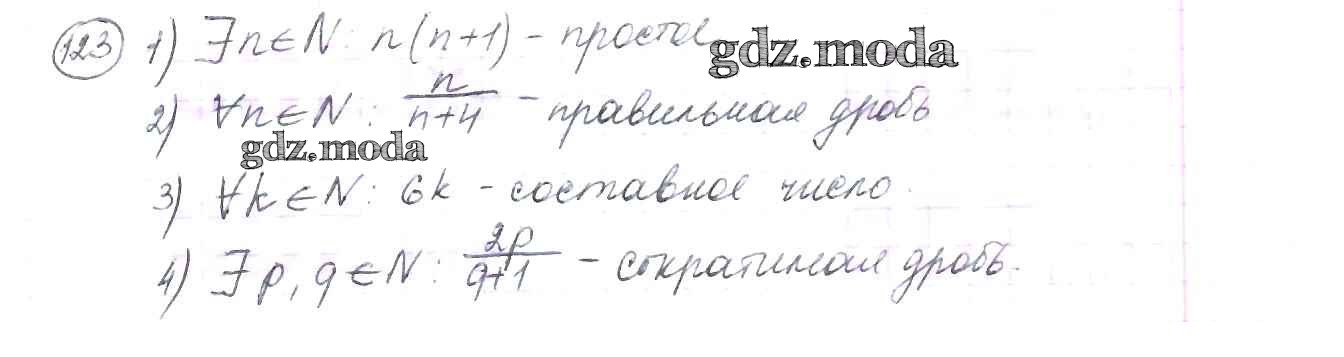 123 1) ∃n∈N: n(n+1) - простое gdz.moda
2) ∀n∈N: n/(n+4) - правильная дробь
gdz.moda
3) ∀k∈N: 6k - составное число.
4) ∃p, q∈N: 2p/(q+1) - сократимая дробь.